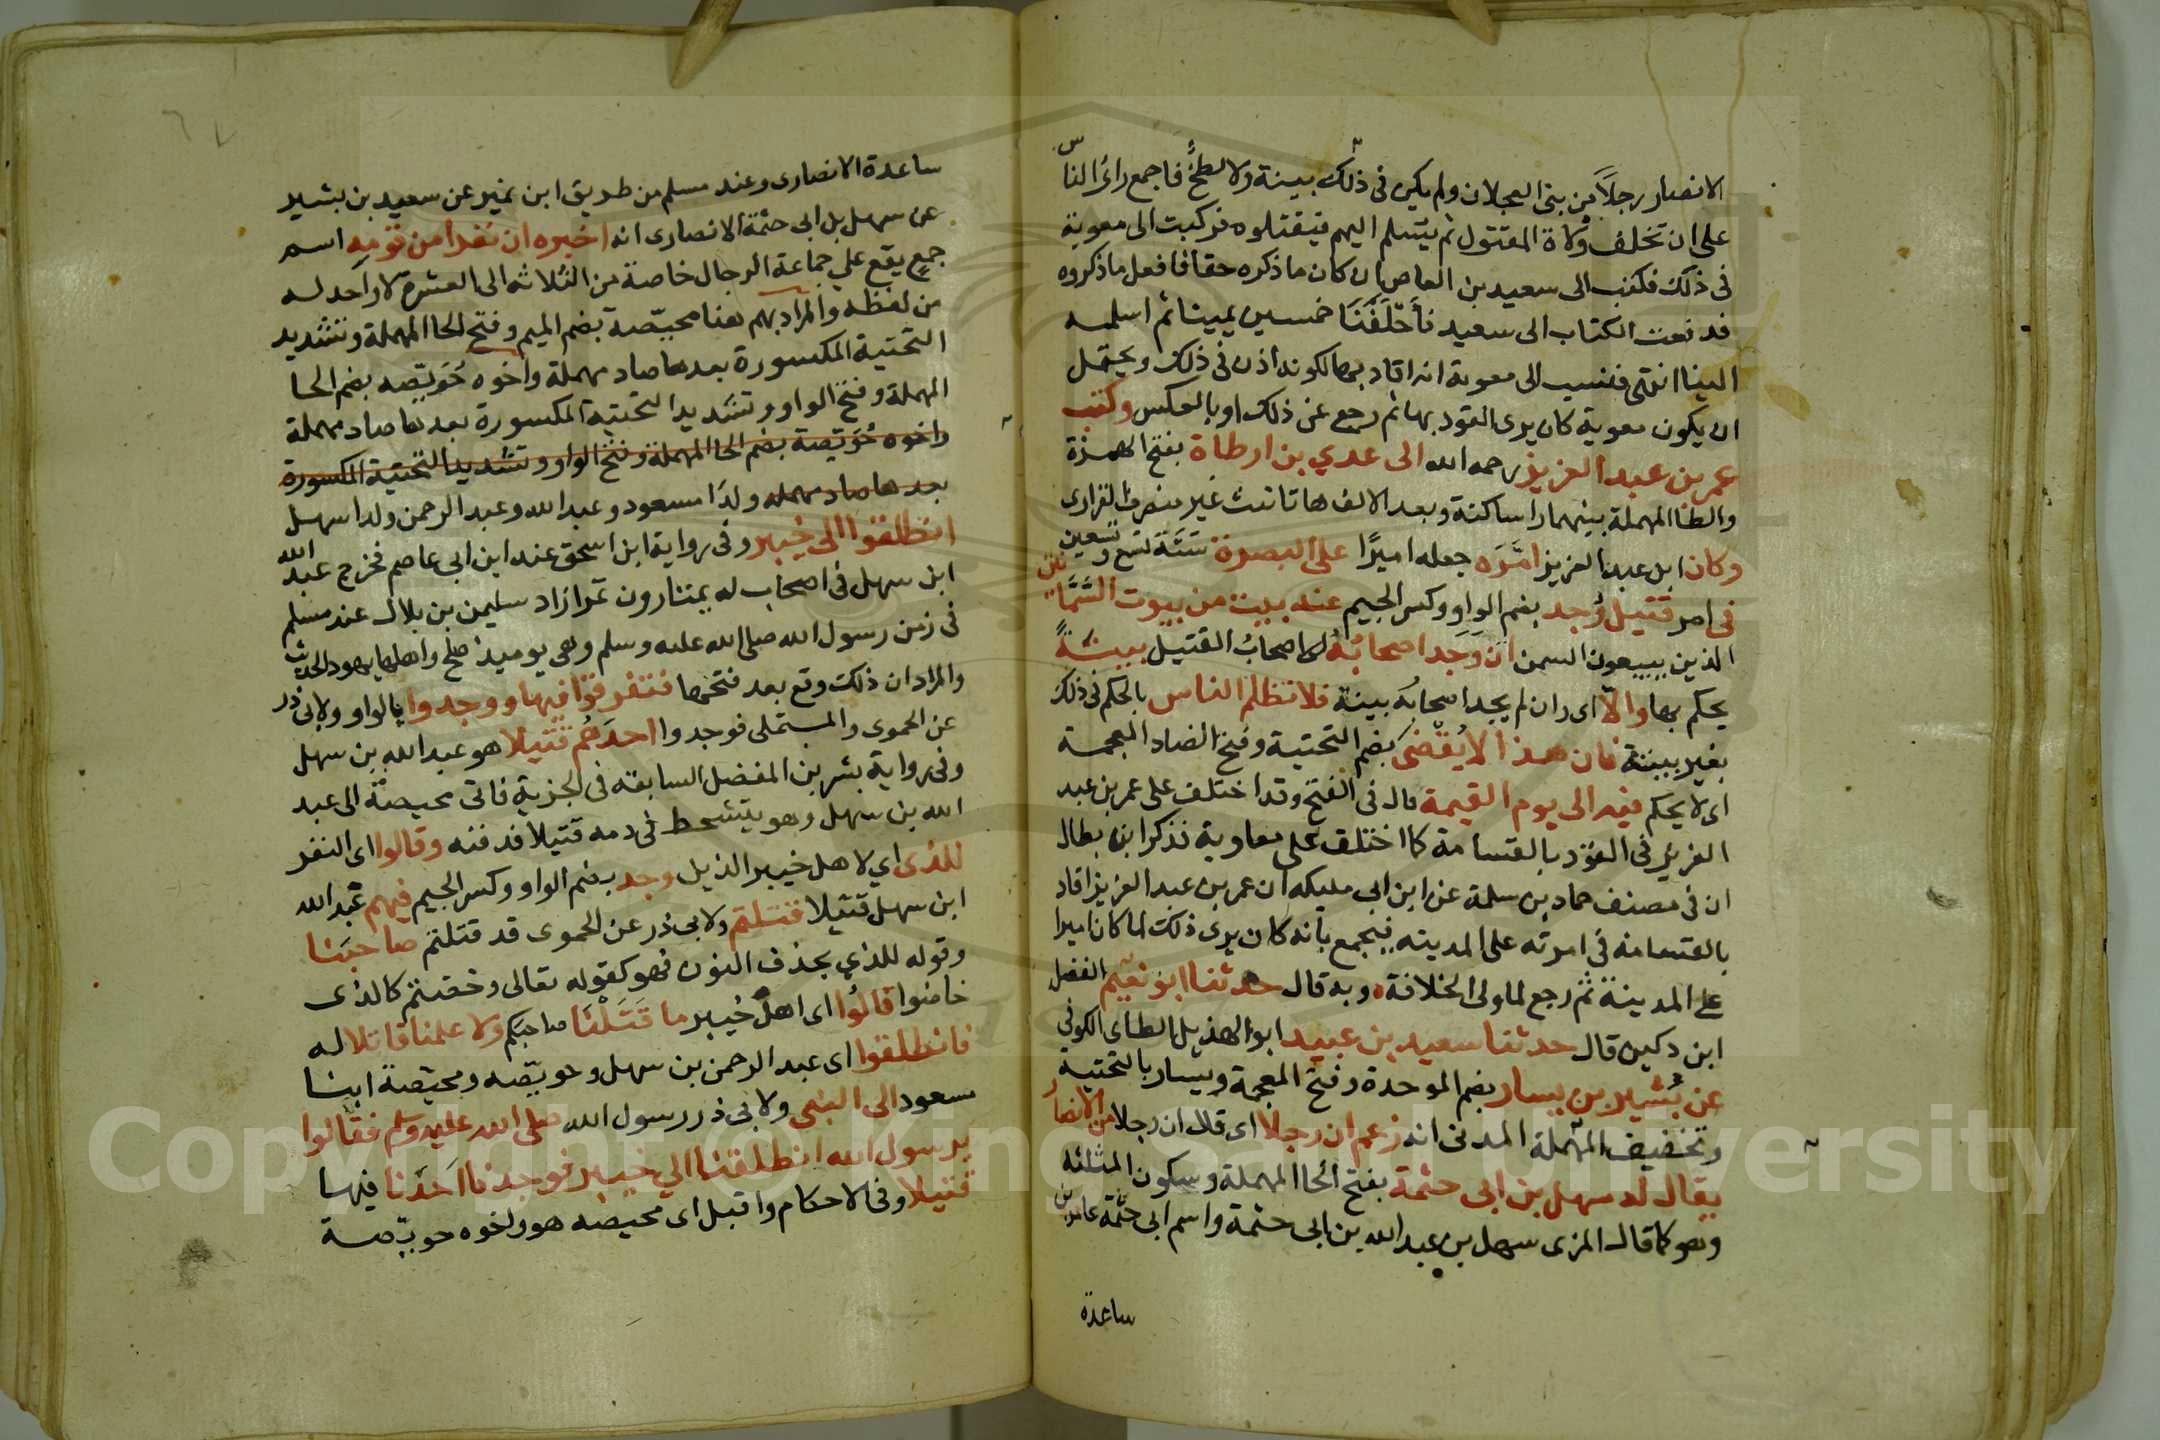 الانصار رجلاً من بنى العجلان ولم يكن فى ذلك بينة ولا لطخٌ فاجمع راىُ الناس
على ان تخلف ولاة المقتول ثم يتسلم اليهم فيقتلوه فركبت الى معوية
فى ذلك فكتب الى سعيد بن العاص ان كان ما ذكره حقا فافعل ما ذكروه
فدفعت الكتاب الى سعيد فأحْلَفَنَا خمسين يمينا ثم اسلمه
الينا انتهى فنسب الى معوية انه اقاد بها لكونه اذن فى ذلك ويحتمل
ان يكون معوية كان يرى القود بها ثم رجع عن ذلك او بالعكس وكتب
عمر بن عبد العزيز رحمه الله الى عدي بن ارطاة بفتح الهمزة
والطا المهملة بينهما راساكنة وبعد الالف ها تانيث غير منصرف الفزارى
وكان ابن عبد العزيز امَّرَه جعله اميرًا على البصرة سَنَة تسع وتسعين
فى امر قتيل وُجد بضم الواو وكسر الجيم عند بيت من بيوت السَّمَّانين
الذين يبيعون السمن ان وَجَد اصحابُهُ اى اصحابُ القتيل بينةً
يحكم بها والاّ اى وان لم يجد اصحابُه بينة فلا تظلم الناس بالحكم فى ذلك
بغير بينة فان هذا لا يُقْضَى بضم التحتية وفتح الضاد المعجمة
اى لا يحكم فيه الى يوم القيمة قال فى الفتح وقد اختلف على عمر بن عبد
العزيز فى القَوَد بالقسامة كما اختلف على معاوية فذكر ابن بطال
ان فى مصنف حماد بن سلمة عن ابن ابى مليكه ان عمر بن عبد العزيز اقاد
بالقسامة فى امرته على المدينه فيجمع بانه كان يرى ذلك لما كان اميرا
على المدينة ثم رجع لما ولى الخلافة ه وبه قال حدثنا ابو نعيم الفضل
ابن دكين قال حدثنا سعيد بن عبيد ابو الهذيل الطاى الكوفى
عن بُشير بن يسار بضم الموحدة وفتح المعجمة ويسار بالتحتية
وتخفيف المهملة المدنى انه زعم ان رجلا اى قال ان رجلا من الانصار
يقال له سهل بن ابى حثمة بفتح الحا المهملة وسكون المثلثه
وهو كما قال المزى سهل بن عبد الله بن ابى حثمة واسم ابى حثمة عامر بن
ساعدة
ساعدة الانصارى وعند مسلم من طريق ابن نمير عن سعيد بن بشير
عن سهل بن ابى حثمة الانصارى انه اخبره ان نفرا من قومِه اسم
جمعٍ يقع على جماعة الرجال خاصة من الثلاثه الى العشرة لا واحد له
من لفظه والمراد بهم هنا محيّصة بضم الميم وفتح الحا المهملة وتشديد
التحتية المكسورة بعدها صاد مهملة واخوه حُوَيّصه بضم الحا
المهملة وفتح الواو وتشديد التحتية المكسورة بعدها صاد مهملة
واخوه حُوَيصة بضم الحا المهملة وفتح الواو وتشديد التحتية المكسورة
بعدها صاد مهمله ولدَا مسعود وعبد الله وعبد الرحمن ولدا سهل
انطلقوا الى خيبر وفى رواية ابن اسحق عند ابن ابى عاصم فخرج عبد الله
ابن سهل فى اصحاب له يمتارون تمرا زاد سليمن بن بلال عند مسلم
فى زمن رسول الله صلى الله عليه وسلم وهى يوميذ صلح واهلها يهود الحديث
والمراد ان ذلك وقع بعد فتحها فتفرقوا فيها ووجدوا بالواو ولابى ذر
عن الحموى والمستملى فوجدوا احدَهُم قتيلا هو عبد الله بن سهل
وفى رواية بشر بن المفضل السابقه فى الجزية فاتى محيصة الى عبد
الله بن سهل وهو يتشحط فى دمه قتيلا فدفنه وقالوا اى النفر
للذى اي لاهل خيبر الذين وجد بضم الواو وكسر الجيم فيهم عبد الله
ابن سهل قتيلا قتلتم ولابى ذر عن الحموى قد قتلتم صاحبَنا
وقوله للذي بحذف النون فهو كقوله تعالى وخضتم كالذى
خاضوا قالُوا اى اهل خيبر ما قَتَلْنَا صاحبَكم ولا علمنا قاتلا له
فانطلقوا اى عبد الرحمن بن سهل وحويّصه ومحيّصة ابنا
مسعود الى النبى ولابى ذر رسول الله صلى الله عليه وسلم فقالوا
يرسول الله انطلقنا الي خيبر فوجدنا اَحَدَنا فيها
قتيلا وفى الاحكام واقبل اى محيصه هو واخوه حويّصة
Copyright © King Saud University